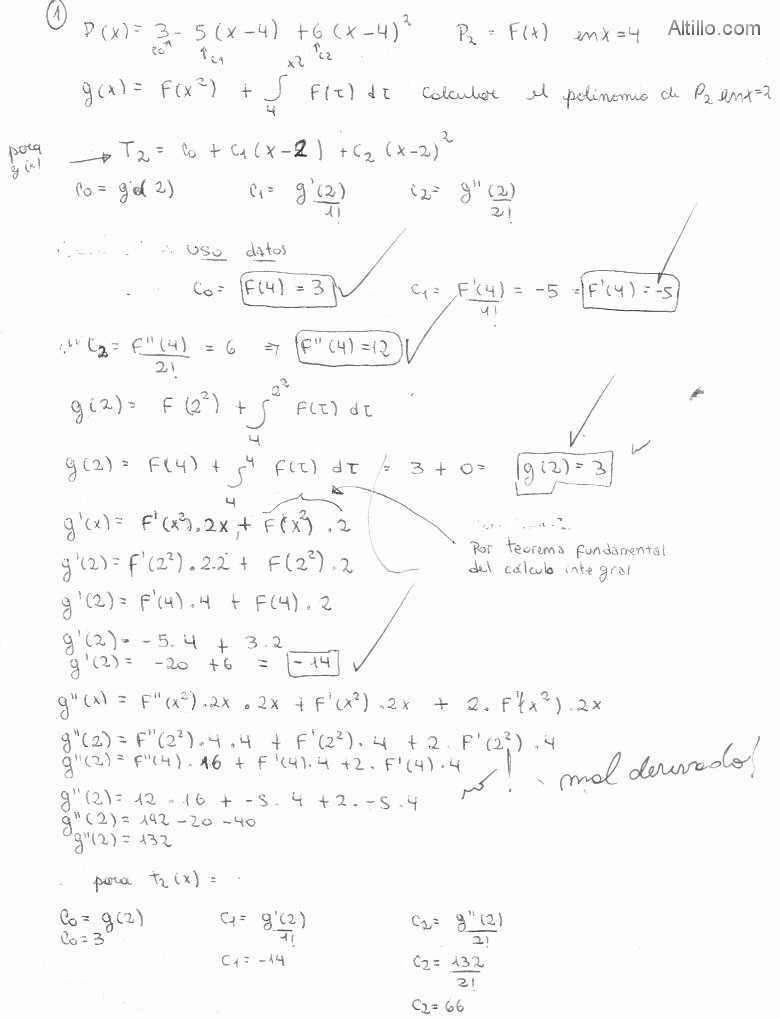 ① P(x) = 3 - 5(x-4) + 6(x-4)² P₂ = F(x) en x=4 Altillo.com
C₀ C₁ C₂
g(x) = F(x²) + ∫₄^x2 F(τ) dτ calcular el polinomio de P₂ en x=2
para g(x) → T₂ = C₀ + C₁(x-2) + C₂(x-2)²
C₀ = g(2) C₁ = g'(2)/1! C₂ = g''(2)/2!
uso datos
C₀ = F(4) = 3 C₁ = F'(4)/1! = -5 = F'(4) = -5
C₂ = F''(4)/2! = 6 ⇒ F''(4) = 12
g(2) = F(2²) + ∫₄^2² F(τ) dτ
g(2) = F(4) + ∫₄^4 F(τ) dτ = 3 + 0 = g(2) = 3
g'(x) = F'(x²).2x + F(x²).2
Por teorema fundamental
del cálculo integral
g'(2) = F'(2²).2.2 + F(2²).2
g'(2) = F'(4).4 + F(4).2
g'(2) = -5.4 + 3.2
g'(2) = -20 + 6 = -14
g''(x) = F''(x²).2x.2x + F'(x²).2x + 2.F'(x²).2x
g''(2) = F''(2²).4.4 + F'(2²).4 + 2.F'(2²).4
g''(2) = F''(4).16 + F'(4).4 + 2.F'(4).4
! mal derivado!
g''(2) = 12.16 + -5.4 + 2.-5.4
g''(2) = 192 - 20 - 40
g''(2) = 132
para t₂(x) =
C₀ = g(2) C₁ = g'(2)/1! C₂ = g''(2)/2!
C₀ = 3 C₁ = -14 C₂ = 132/2!
C₂ = 66